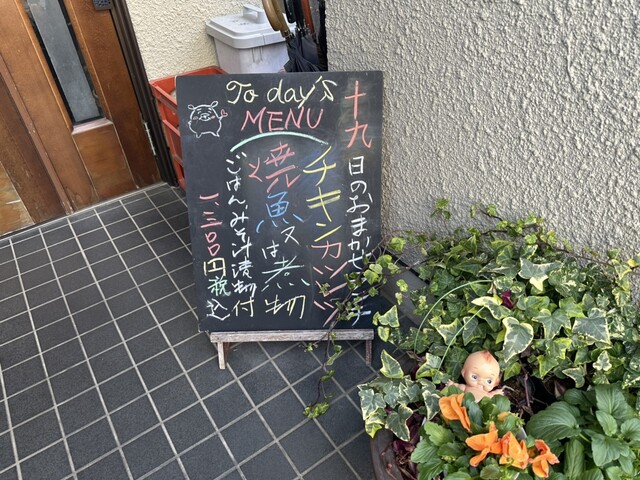 To day's
MENU
十九日のおまかせランチ
チキンカツ
焼魚又は煮物
ごはんみそ汁漬物付
一、三〇〇円税込